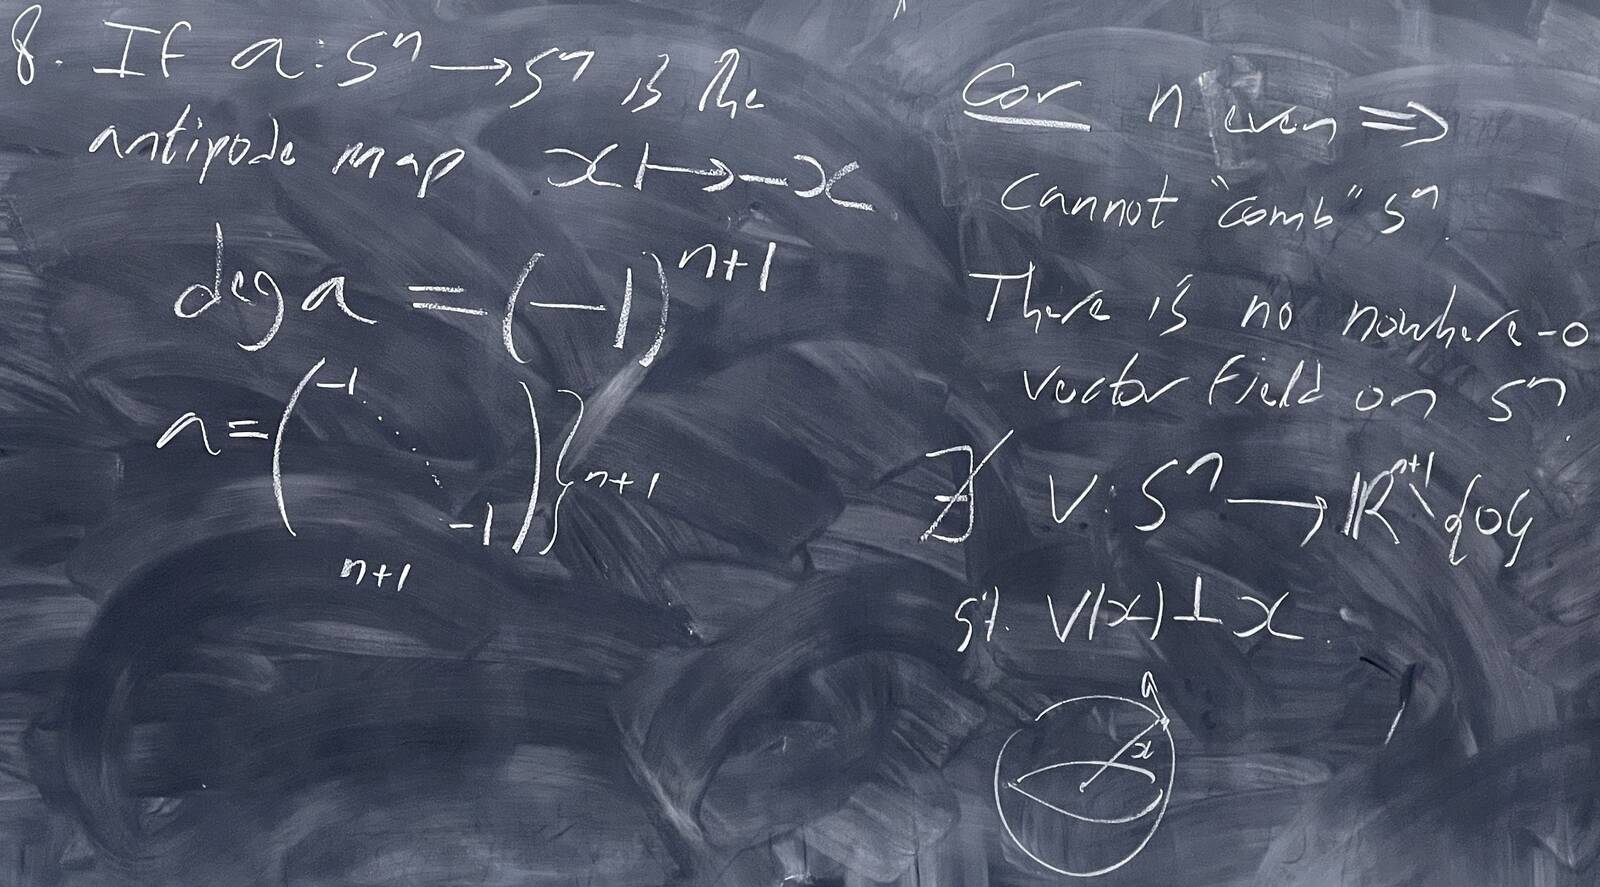 8. If a: Sⁿ → Sⁿ is the
antipode map x ↦ -x
deg a = (-1)ⁿ⁺¹
a = ( -1 ⋱ -1 ) } n+1
n+1
Cor n even ⇒
cannot "comb" Sⁿ.
There is no nowhere-0
vector field on Sⁿ.
∄ V: Sⁿ → ℝⁿ⁺¹\{0}
st. V(x) ⊥ x.
x